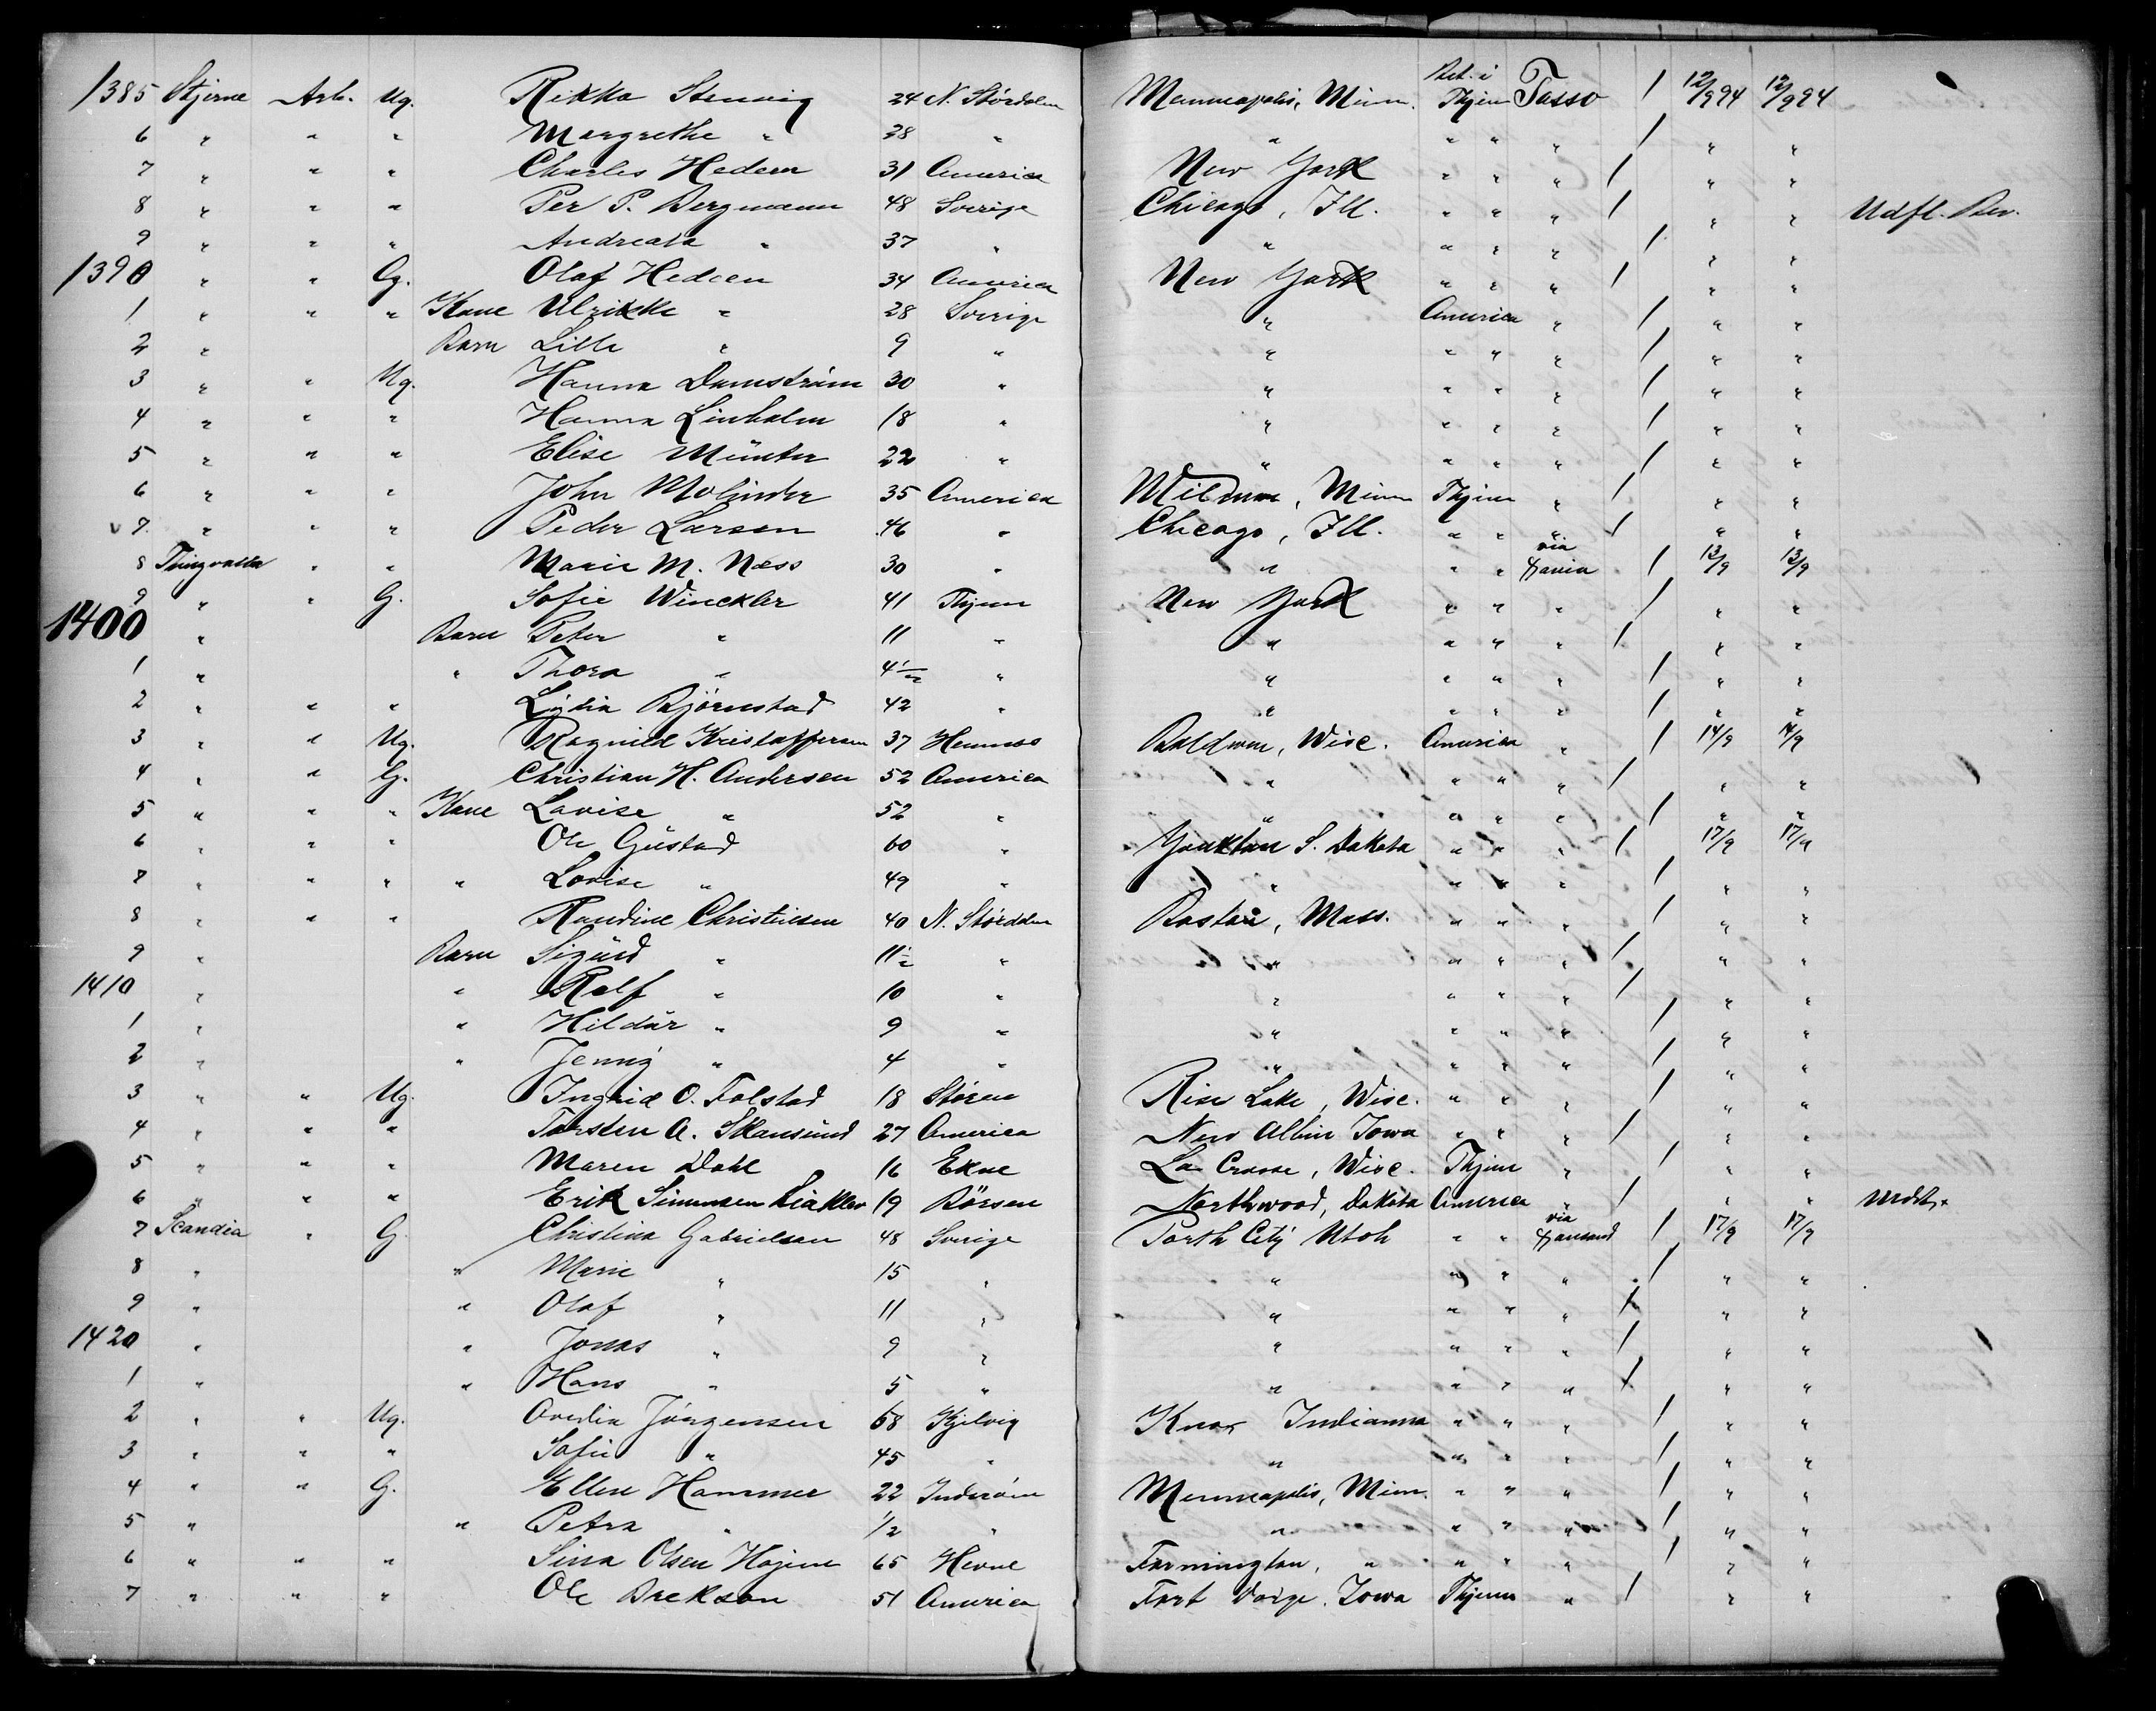 1385 Stjerne Arb. Ug. Rikka Stenvig 24 N. Stördalen Menneapolis, Minn. Bet. i Thjem Tasso / 12/9 94 12/9 94
6 " " " Margrethe " 28 " " " " " / " "
7 " " " Charles Hedeen 31 America New York " " " / " "
8 " " " Per P. Bergmann 48 Sverige Chicago, Ill. " " " / " " Udfl. Bev.
9 " " " Andreata " 37 " " " " " / " "
1390 " " G. Olaf Hedeen 34 America New York " " " / " "
1 " " " Kone Ulrikke " 28 Sverige " America " / " "
2 " Barn Lille " 9 " " " " " / " "
3 " " Ug. Hanna Damström 30 " " " " " / " "
4 " " " Hanna Linholm 18 " " " " " / " "
5 " " " Elise Münter 22 " " " " " / " "
6 " " " John Molinder 35 America Minn Thjem " / " "
7 " " " Peder Larsen 46 " Chicago, Ill. " " " / " "
8 Thingvalla " " Marie M. Næss 30 " " " " via Xania / 13/9 13/9
9 " " G. Sofie Winckler 41 Thjem New York " " " / " "
1400 " Barn Peter " 11 " " " " " / " "
1 " " Thora " 4 1/2 " " " " " / " "
2 " " " Lydia Björnstad 42 " " " " " / " "
3 " " Ug. Ragnild Kristoffersen 37 Hemnæs Baldwin, Wise. America " / 14/9 14/9
4 " " G. Christian H. Andersen 52 America " " " " / " "
5 " " " Kone Lovise " 52 " " " " " / " "
6 " " " Ole Gustad 60 " Yanktan S. Dakota " " " / 17/9 17/9
7 " " " " Lovise " 49 " " " " " / " "
8 " " " Randine Christensen 40 N. Stördalen Boston, Mass. " " " / " "
9 " Barn Sigurd " 11 1/2 " " " " " / " "
1410 " " Rolf " 10 " " " " " / " "
1 " " Hildur " 9 " " " " " / " "
2 " " Jenny " 4 " " " " " / " "
3 " " Ug. Ingrid O. Folstad 18 Støren Rise Lake, Wise. " " " / " "
4 " " " Torsten A. Skansund 27 America New Albin Iowa " " " / " "
5 " " " Maren Dahl 16 Ekne La Crosse, Wise. Thjem " / " "
6 " " " Erik Simonsen Liaklev 19 Börsen Northwood, Dakota America " / " "
7 Scandia " G. Christina Gabrielsen 48 Sverige Porth City Utoh " " via Xansund / 17/9 17/9
8 " " Marie " 15 " " " " " / " "
9 " " Olaf " 11 " " " " " / " "
1420 " " Jonas " 9 " " " " " / " "
1 " " Hans " 5 " " " " " / " "
2 " " Ug. Ovedia Jörgensen 68 Kjelvig Knox Indianna " " " / " "
3 " " " Sofie " 45 " " " " " / " "
4 " " G. Ellen Hammer 22 Inderöen Menneapolis, Minn. " " " / " "
5 " " Petra " 1/2 " " " " " / " "
6 " " " Sina Olsen Högine 65 Hevne Farmington, " " " " / " "
7 " " " Ole Brekson 51 America Fort Dorge. Iowa Thjem " / " "